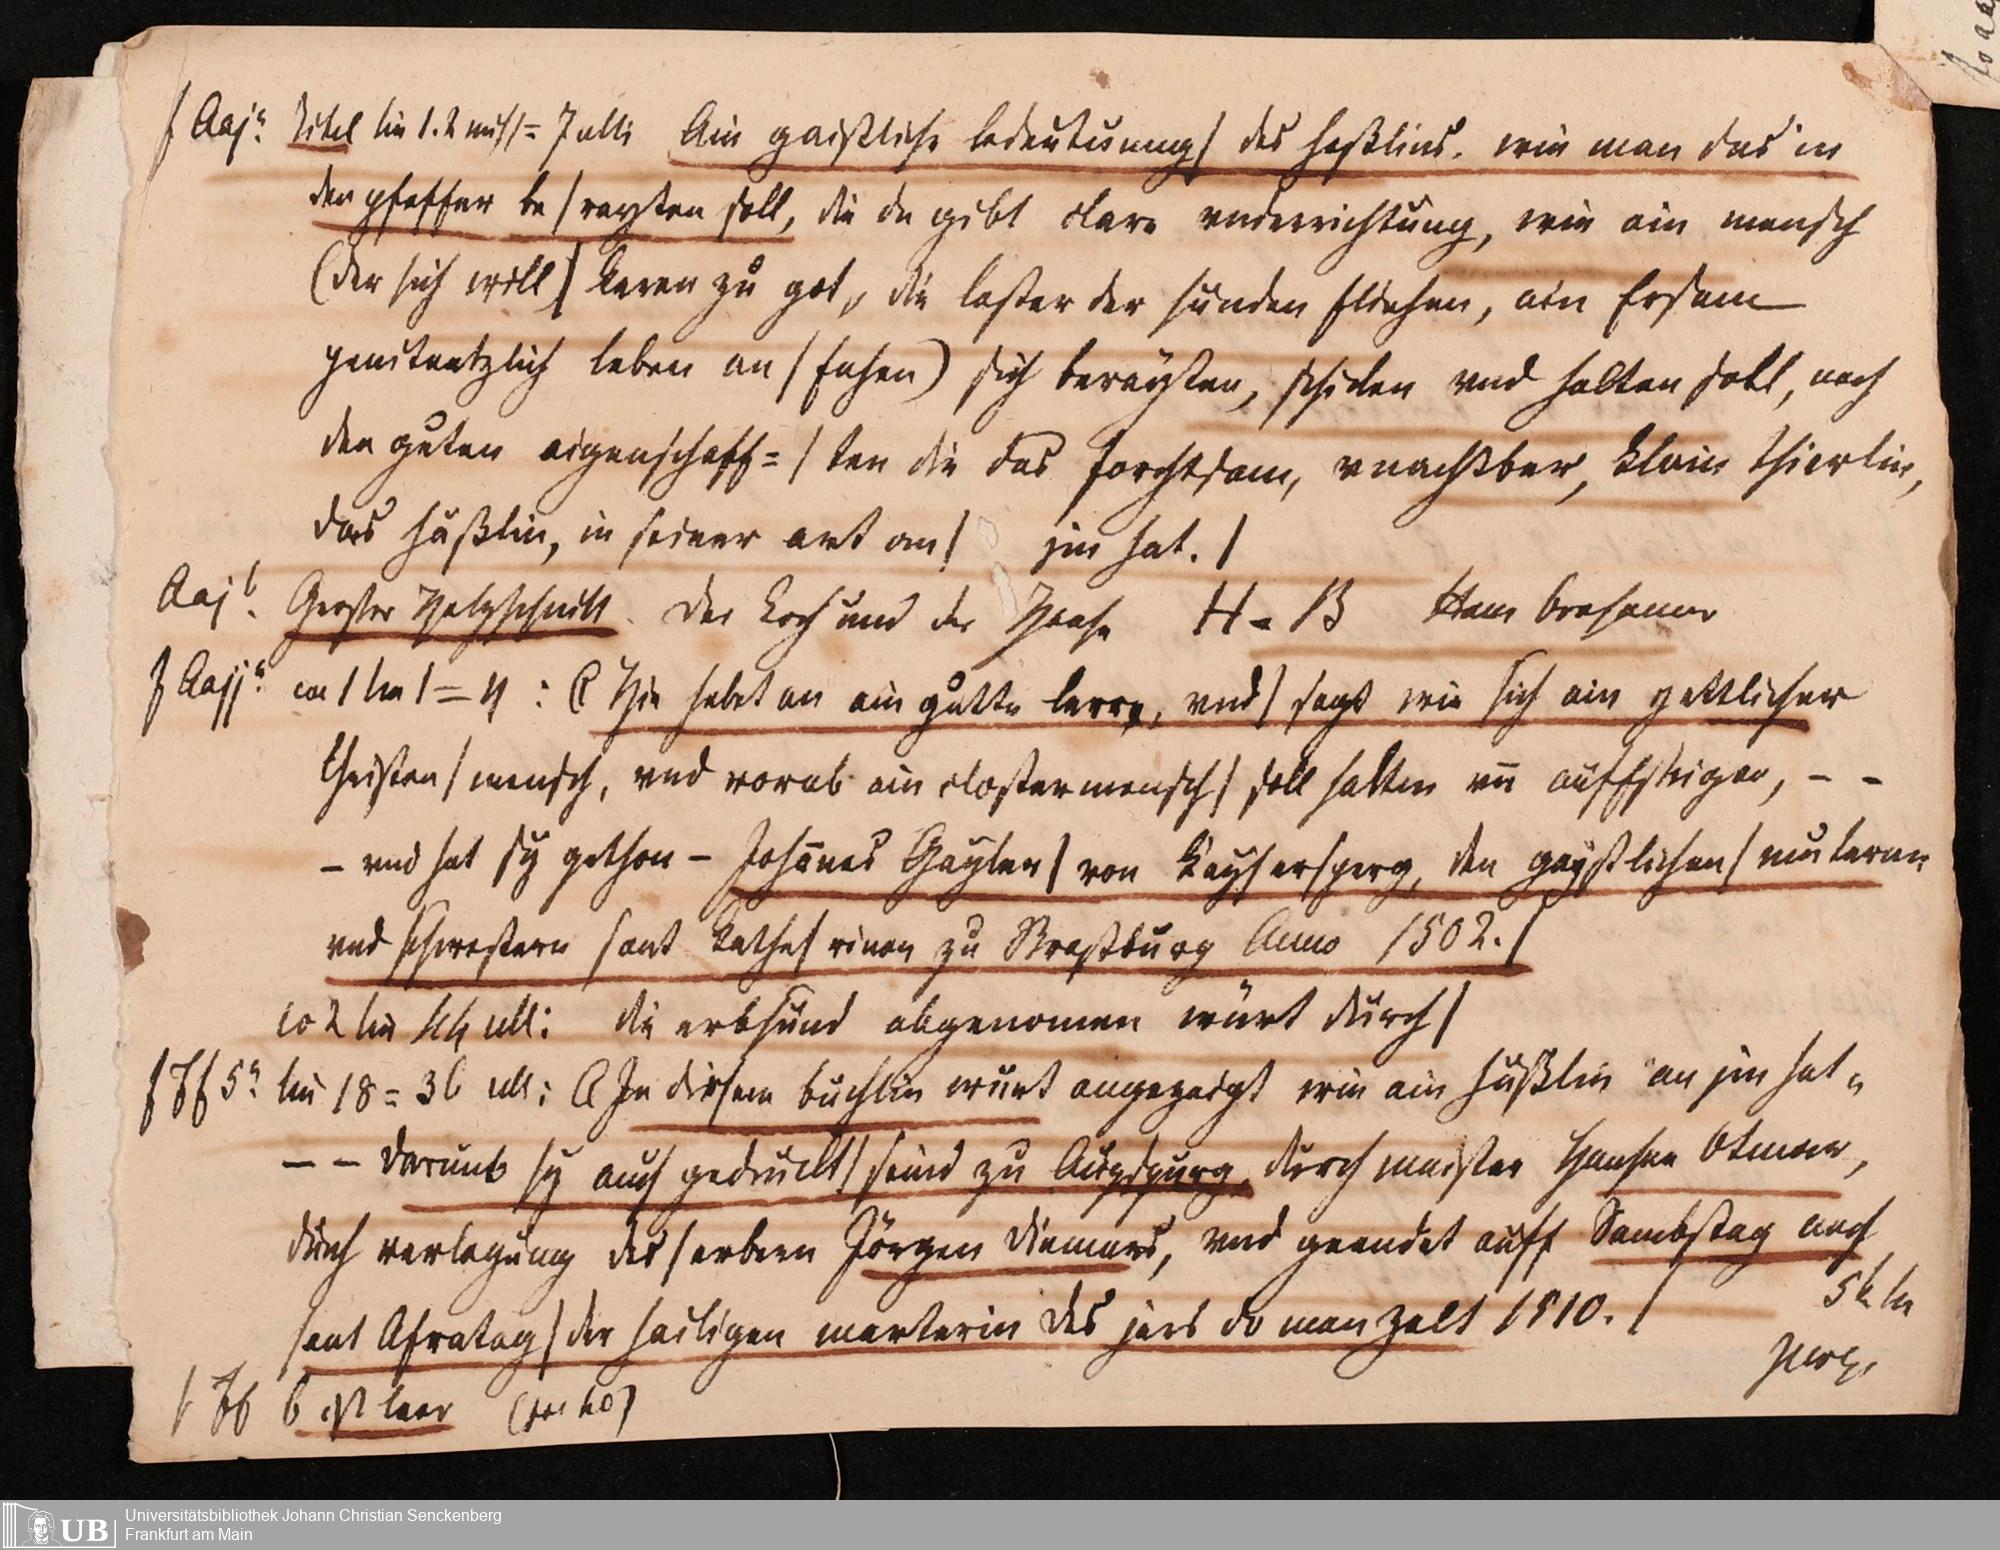 f Aaj a. Titel lin 1. 2 miss= Ain gaistliche bedeutunng/ des haßlins. wie man das in
den pfeffer be/rayten soll, die da gibt clare underrichtung, wie ain mensch
(der sich will/ keren zu got, die laster der sünden fliehen, ain Ersam
penitentzlich leben an/fahen) sich berayten, schiken vnd halten soll, nach
den guten aigenschaff=/ten die das forchtsam, vnachtber, klain thierlin,
das häßlin, in seiner art an/ jm hat./
Aaj b. Grosser Holzschnitt. Der Koch und der Haase H = B Hans Brosamer
f Aajj a. col 1 lin 1=4: Hie hebet an ain gutte lerre, vnd/ sagt wie sich ain gottlicher
Cristen/mensch, vnd vorab ain clostermensch/ soll halten vn auffsteigen, - -
- vnd hat sy gethon - Johānes Gayler/ von Kaysersperg, den gaystlichen/ muteren
vnd schwestern sant Kathe/rinen zu Straßburg Anno 1502./
co 2 lin 44 ult: die erbsünd abgenomen würt durch/
f Ff 5 a. lin 18=36 ult: In disem büchlin würt angezaigt wie ain häßlin an jm hat
- - Darumb sy auch gedruckt/ seind zu Augspurg, durch maister Hansen Otmar,
durch verlegung des/ erbern Jörgen Diemars, vnd geendet auff Sambstag nach
sant Afratag/ der hailigen marterin des jars do man zalt 1510./
f Ff 6 ist leer